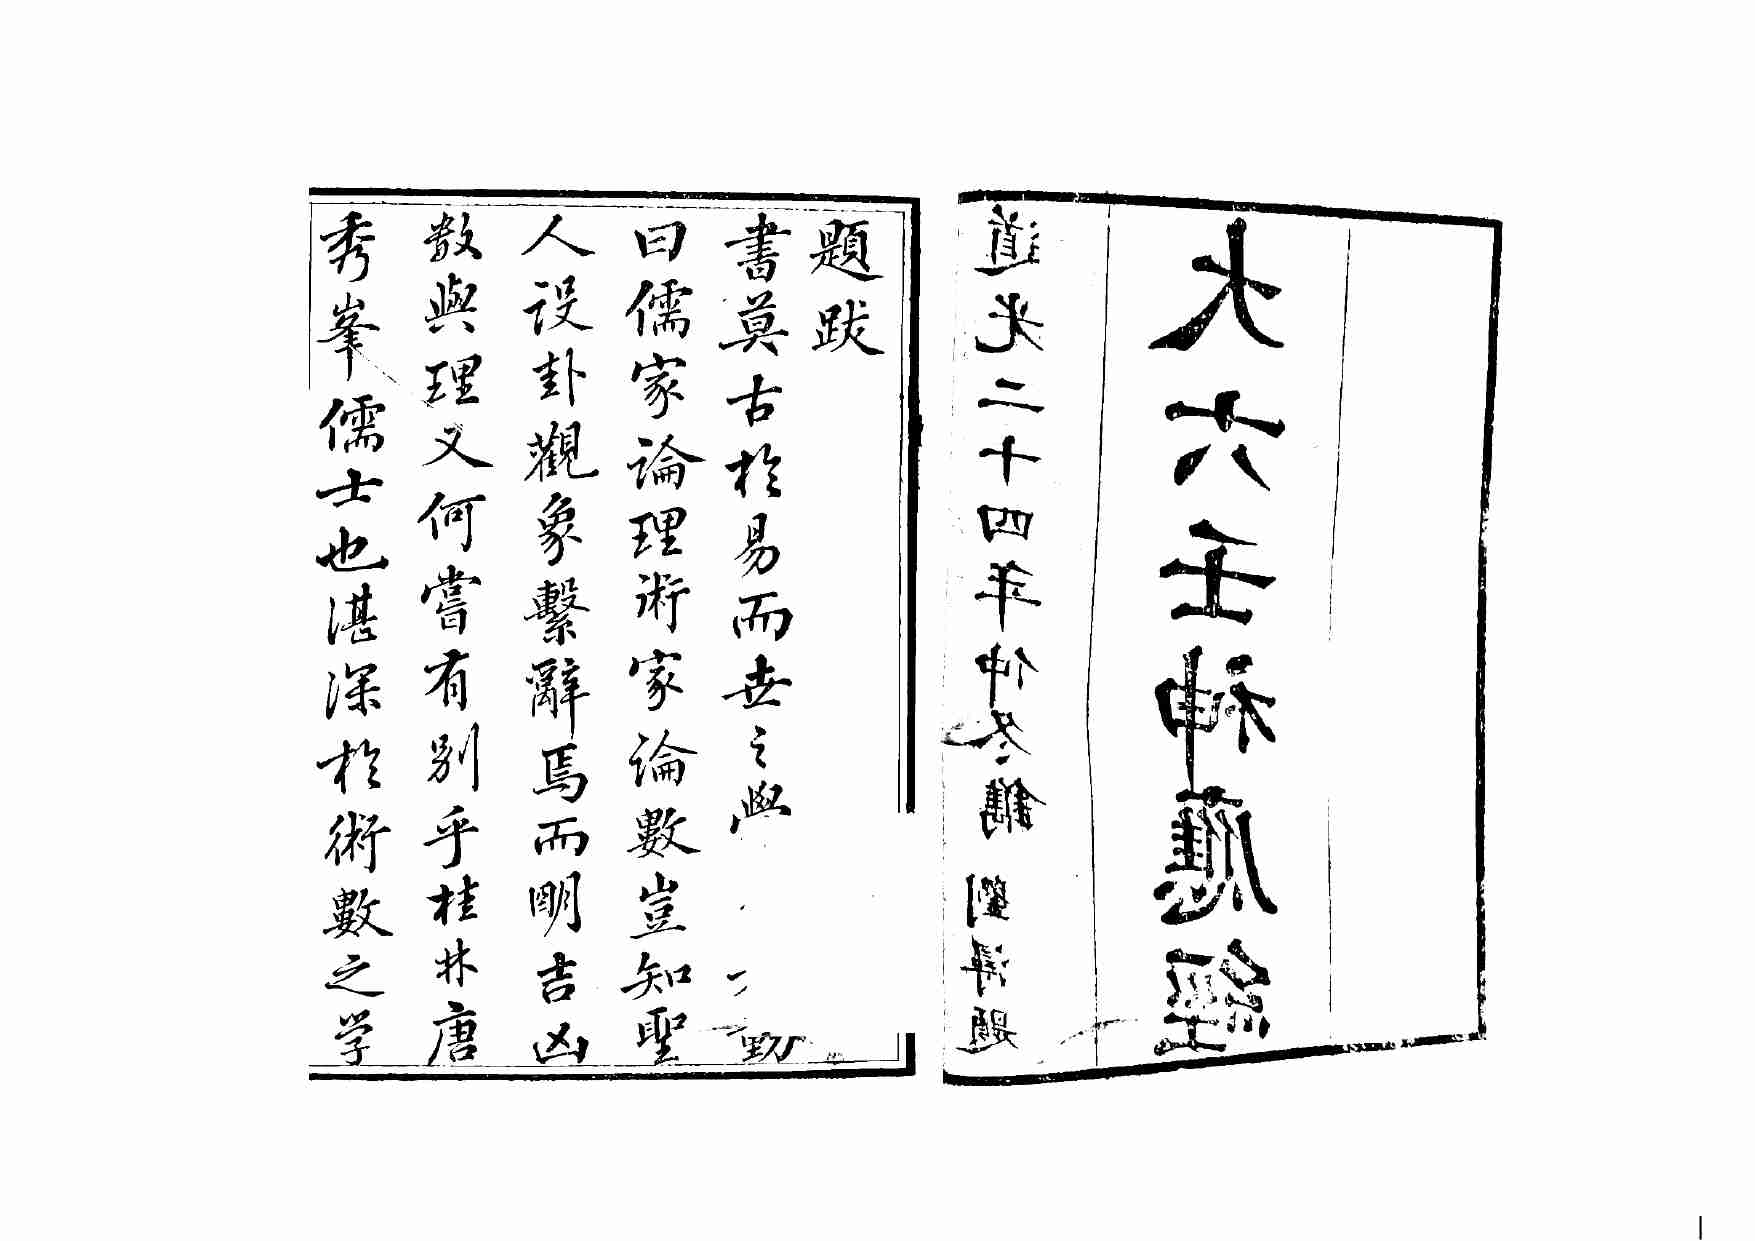 大六壬神應經
道光二十四年仲冬鐫 劉潯題
題跋
書莫古於易而世之與
曰儒家論理術家論數豈知聖
人設卦觀象繫辭焉而明吉凶
數與理又何嘗有別乎桂林唐
秀峯儒士也湛深於術數之学